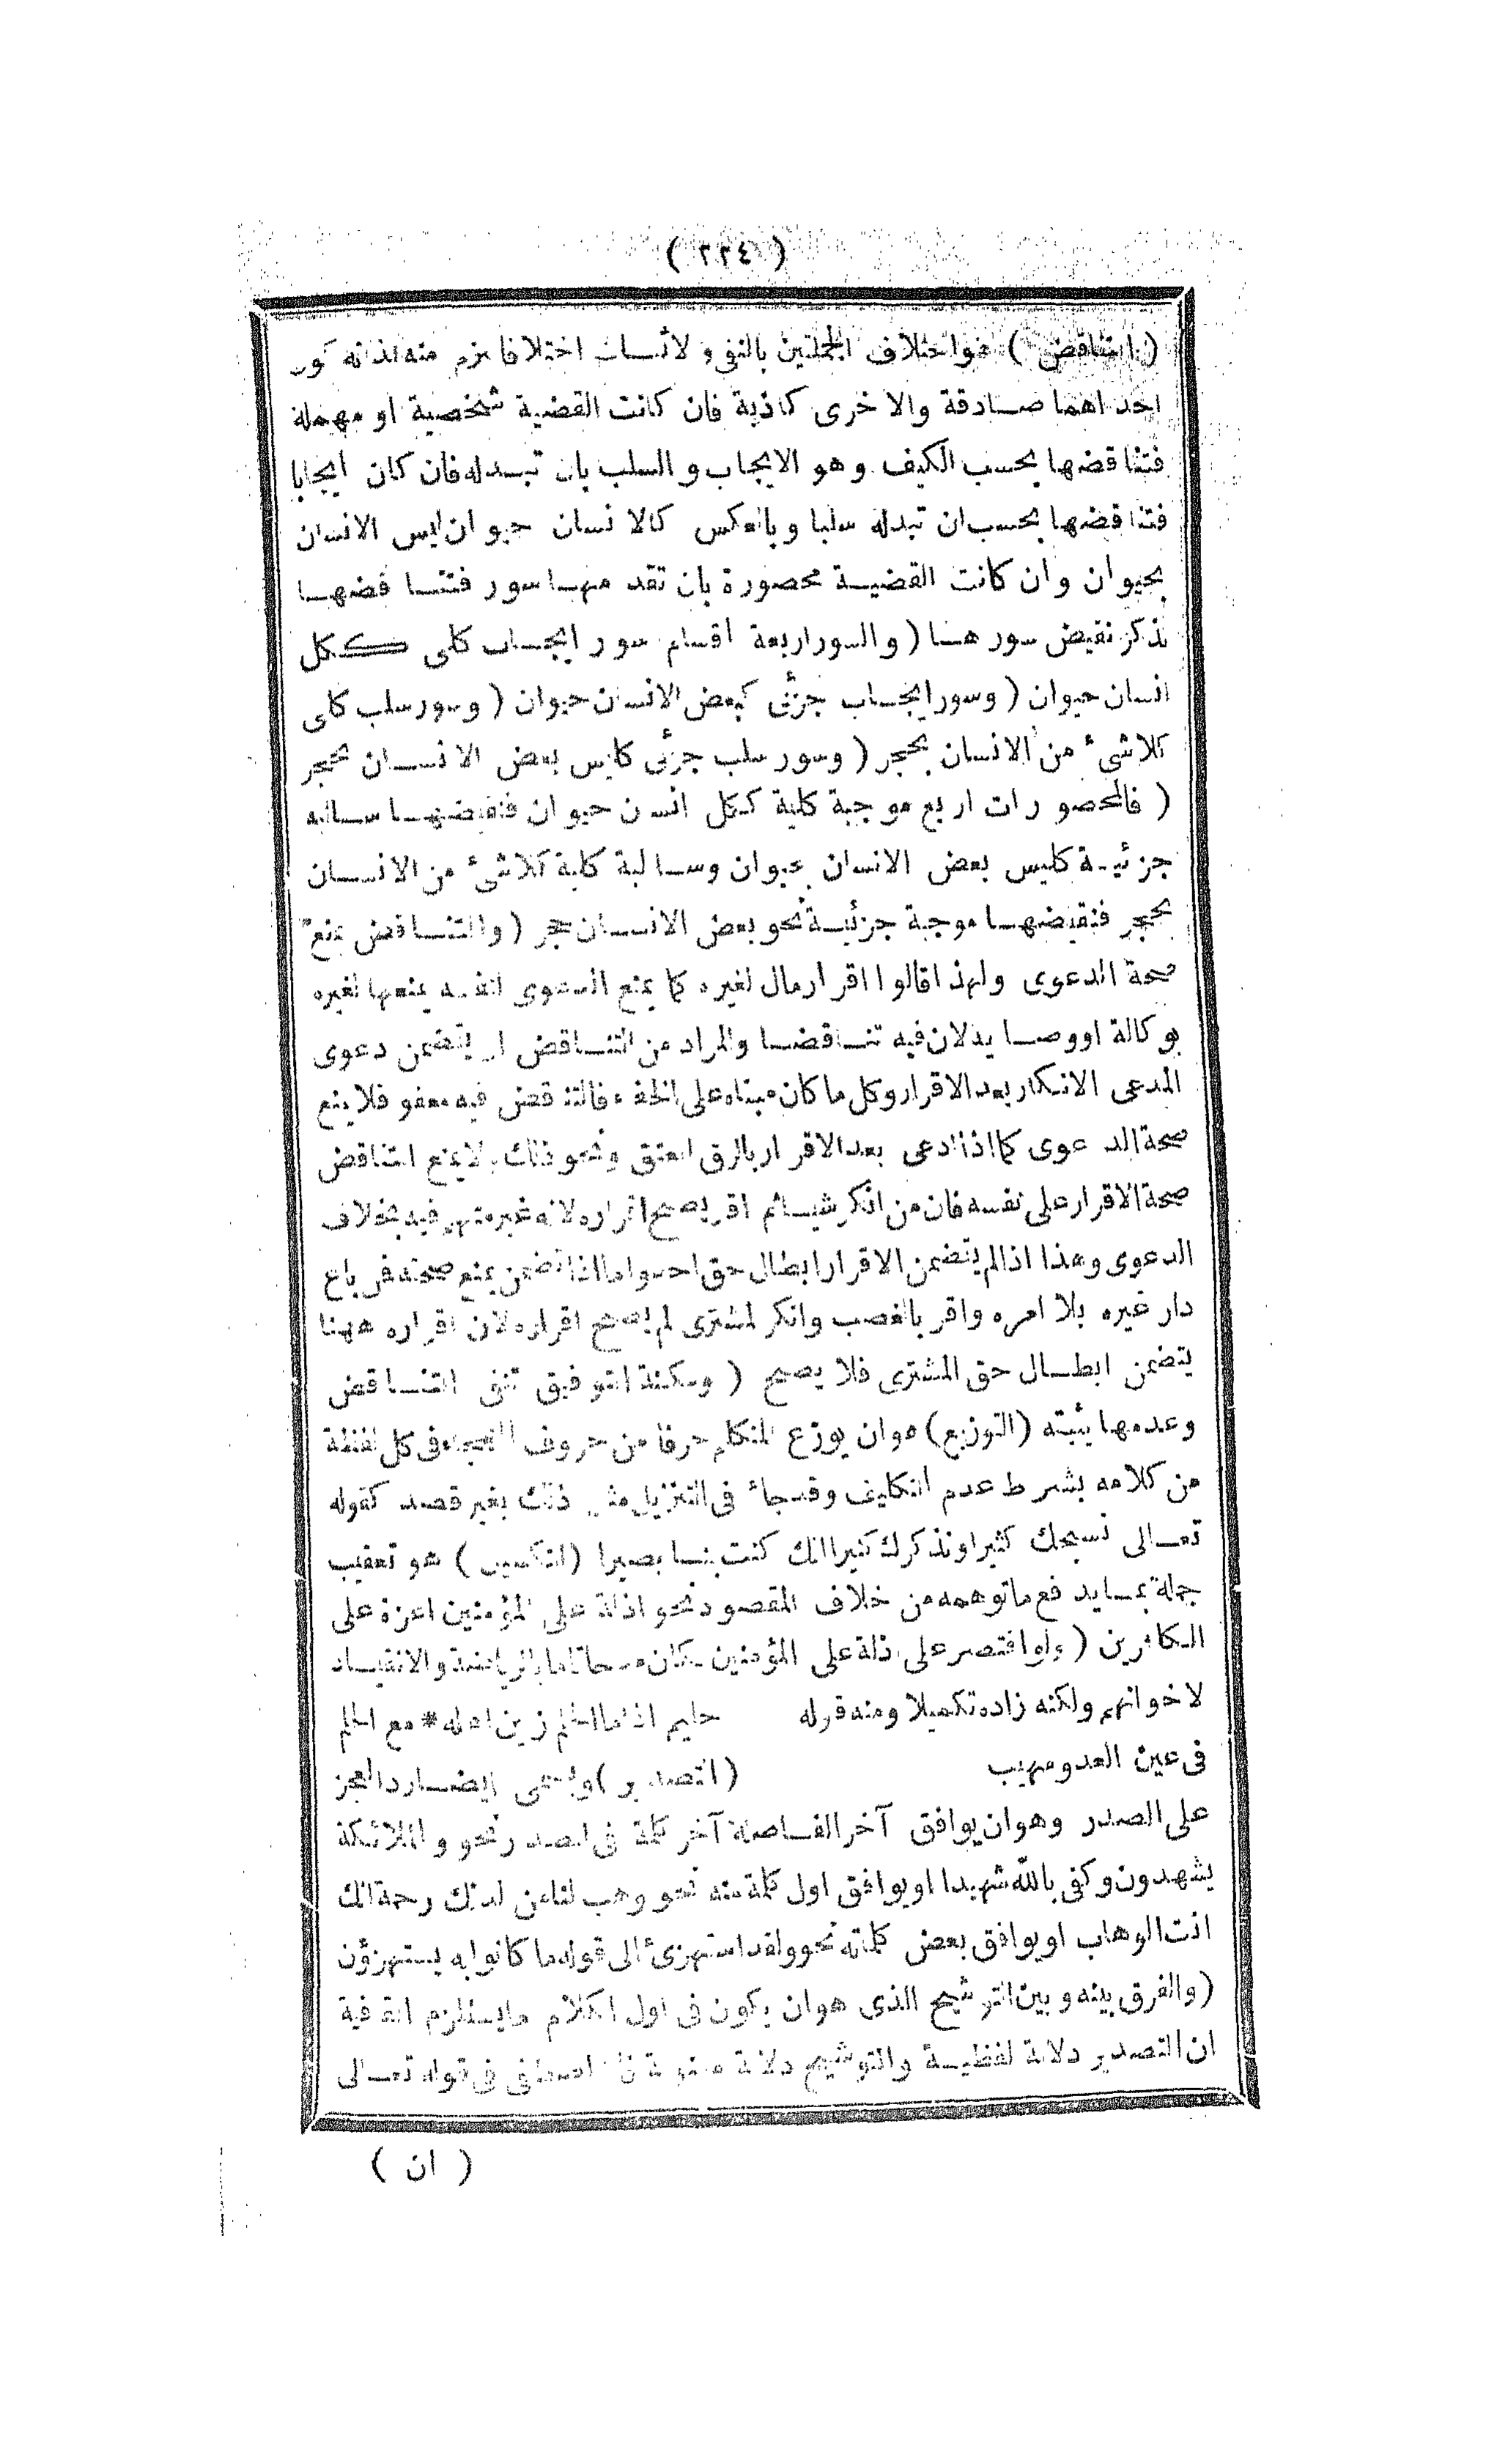 ( ٢٢٤ )
(التناقض) هو اختلاف الجملتين بالنفى والاثبات اختلافا يلزم منه لذاته كون
احداهما صادقة والاخرى كاذبة فان كانت القضية شخصية او مهملة
فتناقضها بحسب الكيف وهو الايجاب والسلب بان تبدله فان كان ايجابا
فتناقضها بحسب ان تبدله سلبا وبالعكس كالانسان حيوان ليس الانسان
بحيوان وان كانت القضية محصورة بان تقدمها سور فتناقضها
بذكر نقيض سورها (والسور اربعة اقسام سور ايجاب كلى ككل
انسان حيوان (وسور ايجاب جزئى كبعض الانسان حيوان (وسور سلب كلى
كلاشئ من الانسان بحجر (وسور سلب جزئى كليس بعض الانسان بحجر
(فالمحصورات اربع موجبة كلية ككل انسان حيوان فنقيضها سالبة
جزئية كليس بعض الانسان بحيوان وسالبة كلية كلاشئ من الانسان
بحجر فنقيضها موجبة جزئية نحو بعض الانسان حجر (والتناقض يمنع
صحة الدعوى ولهذا قالوا اقرار مال لغيره كما يمنع الدعوى لنفسه يمنعها لغيره
بوكالة او وصاية لان فيه تناقضا والمراد من التناقض ان يتضمن دعوى
المدعى الانكار بعد الاقرار وكل ما كان مبناه على الخفاء فالتناقض فيه معفو فلا يمنع
صحة الدعوى كما اذا ادعى بعد الاقرار بالرق العتق ونحو ذلك ولا يمنع التناقض
صحة الاقرار على نفسه فان من انكر شيا ثم اقر يصح اقراره لانه غير متهم فيه بخلاف
الدعوى وهذا اذا لم يتضمن الاقرار ابطال حق احد واما اذا تضمن يمنع صحته فمن باع
دار غيره بلا امره واقر بالغصب وانكر المشترى لم يصح اقراره لان اقراره ههنا
يتضمن ابطال حق المشترى فلا يصح (ومكنة التوفيق تنفى التناقض
وعدمها يثبته (التوزيع) هو ان يوزع المتكلم حرفا من حروف الهجاء فى كل لفظة
من كلامه بشرط عدم التكليف وقد جاء فى التنزيل مثل ذلك بغير قصد كقوله
تعالى نسبحك كثيرا ونذكرك كثيرا انك كنت بنا بصيرا (التكميل) هو تعقيب
جملة بما يدفع ما توهمه من خلاف المقصود نحو اذلة على المؤمنين اعزة على
الكافرين (ولو اقتصر على اذلة على المؤمنين لكان مدحا تاما بالرياضة والانقياد
لاخوانهم ولكنه زاده تكميلا ومنه قوله حليم اذا ما الحلم زين اهله * مع الحلم
فى عين العدو مهيب (التصدير) ويسمى ايضا رد العجز
على الصدر وهو ان يوافق آخر الفاصلة آخر كلمة فى الصدر نحو والملائكة
يشهدون وكفى بالله شهيدا او يوافق اول كلمة منه نحو وهب لنا من لدنك رحمة انك
انت الوهاب او يوافق بعض كلماته نحو ولقد استهزئ الى قوله ما كانوا به يستهزؤن
(والفرق بينه وبين التوشيح الذى هو ان يكون فى اول الكلام ما يستلزم القافية
ان التصدير دلالة لفظية والتوشيح دلالة معنوية فان اصطفى فى قوله تعالى
( ان )